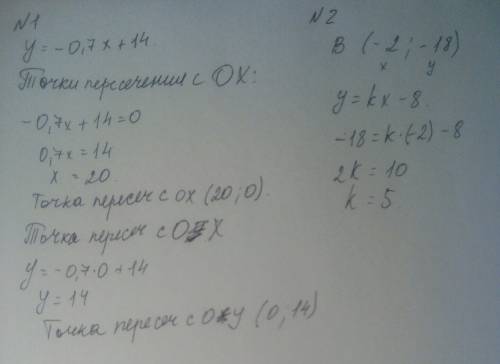 N1
y = -0,7x + 14
Точки пересечения с OX:
-0,7x + 14 = 0
0,7x = 14
x = 20
Точка пересеч с ox (20; 0).
Точка пересеч с OX
y = -0,7·0 + 14
y = 14
Точка пересеч с Oy (0; 14)
N2
B (-2; -18)
x y
y = kx - 8.
-18 = k·(-2) - 8
2k = 10
k = 5.